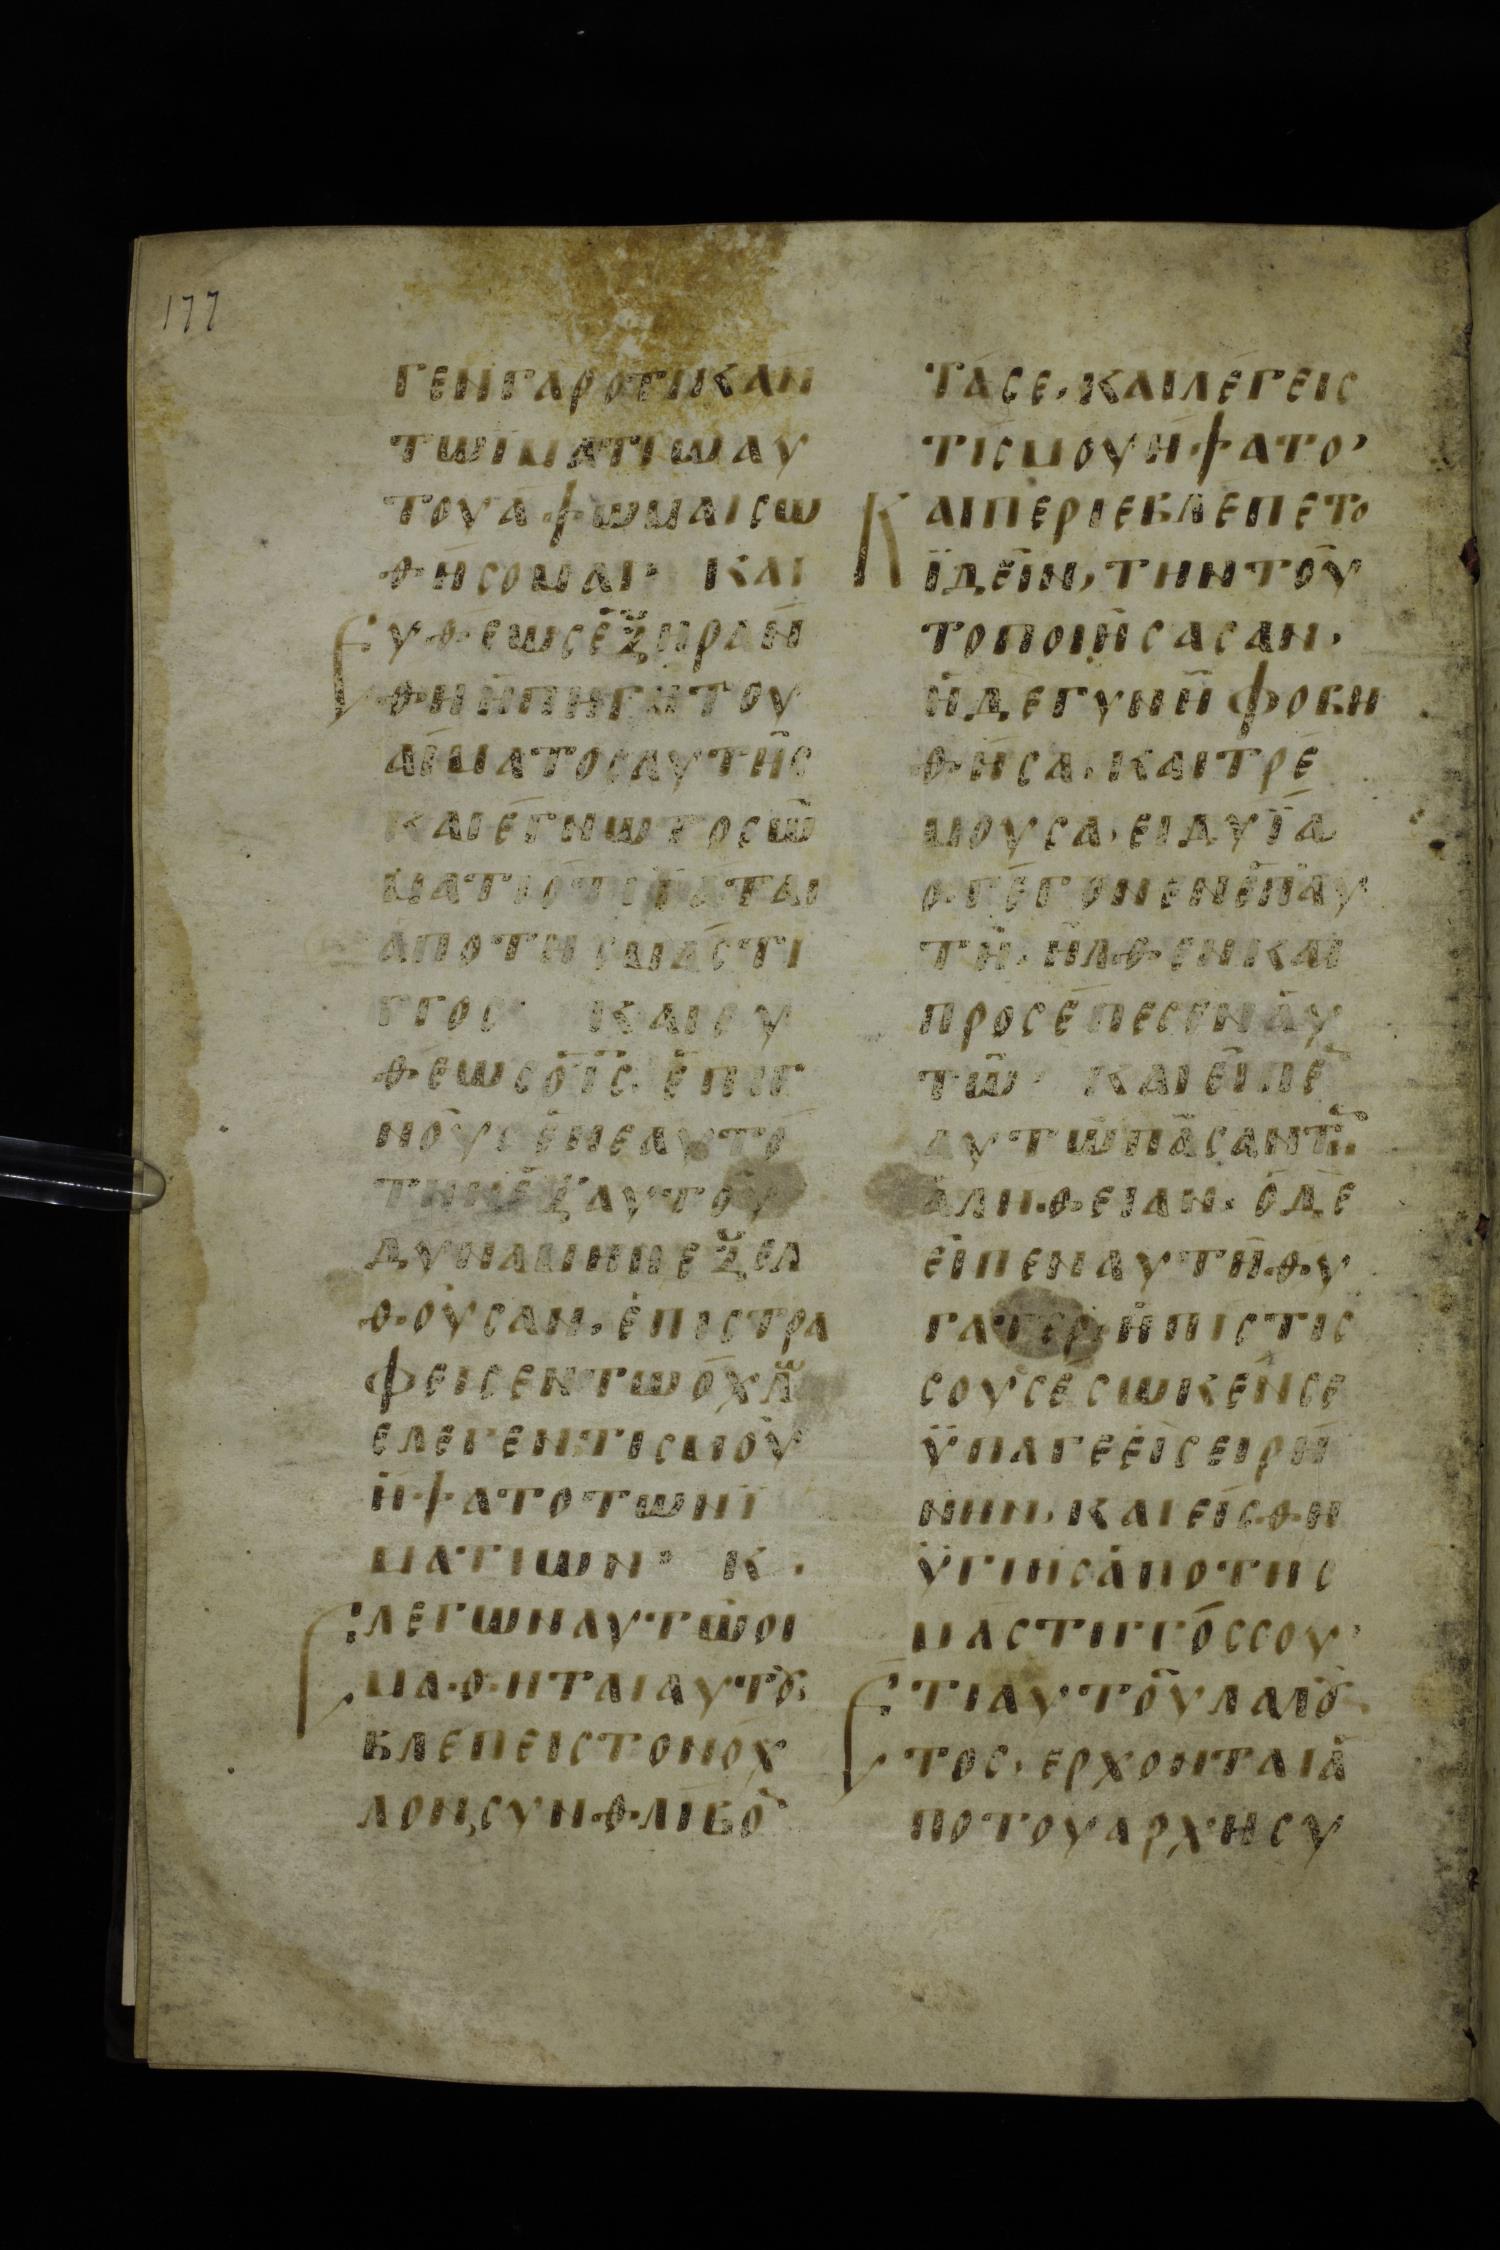 177
ΓΕΝΓΑΡΟΤΙΚΑΝ
ΤΩΪΜΑΤΙΩΑΥ
ΤΟΥΑΨΩΜΑΙϹΩ
ΘΗϹΟΜΑΙ· ΚΑΙ
ΕΥΘΕΩϹΕΞΗΡΑΝ
ΘΗΗΠΗΓΗΤΟΥ
ΑΙΜΑΤΟϹΑΥΤΗϹ
ΚΑΙΕΓΝΩΤΟϹΩ
ΜΑΤΙΟΤΙΪΑΤΑΙ
ΑΠΟΤΗϹΜΑϹΤΙ
ΓΓΟϹ· ΚΑΙΕΥ
ΘΕΩϹΟΙ̅Ϲ̅ ΕΠΙΓ
ΝΟΥϹΕΝΕΑΥΤΟ
ΤΗΝΕΞΑΥΤΟΥ
ΔΥΝΑΜΙΝΗΕΞΕΛ
ΘΟΥϹΑΝ, ΕΠΙϹΤΡΑ
ΦΕΙϹΕΝΤΩΟΧΛ
ΕΛΕΓΕΝ·ΤΙϹΜΟΥ
ΗΨΑΤΟΤΩΝΙ
ΜΑΤΙΩΝ· Κ.
ΕΛΕΓΩΝΑΥΤΩΟΙ
ΜΑΘΗΤΑΙΑΥΤΟΥ·
ΒΛΕΠΕΙϹΤΟΝΟΧ
ΛΟΝ,ϹΥΝΘΛΙΒΟ̅
ΤΑϹΕ, ΚΑΙΛΕΓΕΙϹ
ΤΙϹΜΟΥΗΨΑΤΟ,
ΚΑΙΠΕΡΙΕΒΛΕΠΕΤΟ
ΪΔΕΙΝ, ΤΗΝΤΟΥ
ΤΟΠΟΙΗϹΑϹΑΝ.
ΗΔΕΓΥΝΗΦΟΒΗ
ΘΗϹΑ, ΚΑΙΤΡΕ
ΜΟΥϹΑ, ΕΙΔΥΪΑ
ΟΓΕΓΟΝΕΝΕΠΑΥ
ΤΗ, ΗΛΘΕΝΚΑΙ
ΠΡΟϹΕΠΕϹΕΝΑΥ
ΤΩ· ΚΑΙΕΙΠΕ̅
ΑΥΤΩΠΑϹΑΝΤΗ̅
ΑΛΗΘΕΙΑΝ· ΟΔΕ
ΕΙΠΕΝΑΥΤΗ·ΘΥ
ΓΑΤΕΡ, ΗΠΙϹΤΙϹ
ϹΟΥϹΕϹΩΚΕΝϹΕ
ΫΠΑΓΕΕΙϹΕΙΡΗ
ΝΗΝ, ΚΑΙΕΙϹΘΗ
ΫΓΙΗϹΑΠΟΤΗϹ
ΜΑϹΤΙΓΓΟϹϹΟΥ·
ΕΤΙΑΥΤΟΥΛΑΛΟΥ̅
ΤΟϹ, ΕΡΧΟΝΤΑΙΑ
ΠΟΤΟΥΑΡΧΗϹΥ